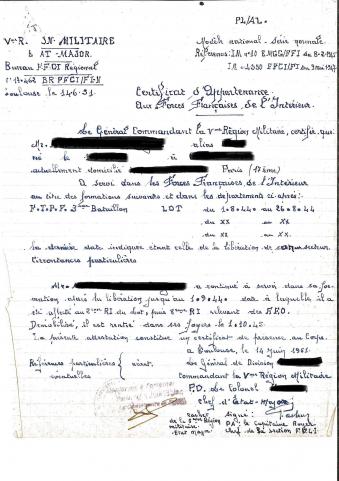 PL/AL.
Vme R. ON MILITAIRE
AT-MAJOR.
Bureau F.F.C.I Régional
N°17.462 BR FFCI/FI-N
Toulouse le 14.6.51.
Modèle national - Série normale
Références: IM n°10 EMGG/FFI du 8-2-1945
IM n°4550 FFCI/FI du 9 mai 1947
Certificat d'Appartenance
aux Forces Françaises de l'Intérieur.
Le Général Commandant la Vme Région Militaire, certifie que
Mr. alias
né le à
actuellement domicilié Paris (17ème)
A servi dans les Forces Françaises de l'Intérieur
au titre des formations suivantes et dans les départements ci-après:
F.T.P.F. 3ème Bataillon LOT du 1.8.44.0 au 26.8.44
du XX au XX.
du XX au XX.
la dernière date indiquée étant celle de la libération de secteur.
Circonstances particulières
Mr. a continué à servir dans sa for-
mation après la libération jusqu'au 1.9.44.0 date à laquelle il a
été affecté au 2ème RI du Lot, puis RI relevant des
Démobilisé, il est rentré dans ses foyers le 1.10.45.
La présente attestation constitue un certificat de présence au Corps.
à Toulouse, le 14 Juin 1951.
Références particulières néant. Le Général de Division
éventuelles commandant la Vme Région Militaire
P.O. de Colonel
Chef d'Etat-Major
cachet signé:
de la 5ème Région P.A. le Capitaine Royer
militaire.
Etat Major chef de la section F.F.C.I